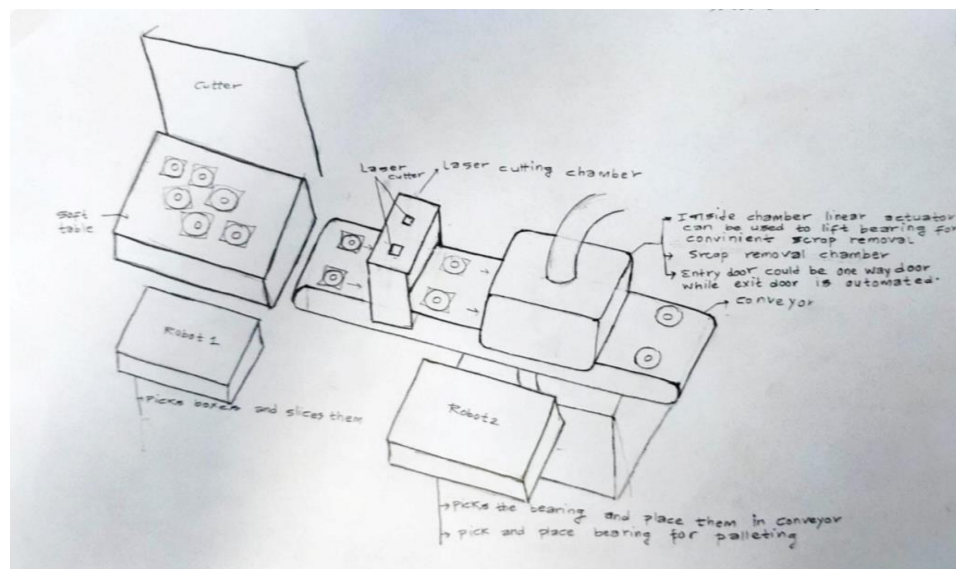 Cutter
Laser
cutter
Laser cutting chamber
Soft
table
Inside chamber linear actuator
can be used to lift bearing for
convinient scrap removal
Srcap removal chamber
Entry door could be one way door
while exit door is automated.
conveyor
Robot 1
Picks boxes and slices them
Robot2
Picks the bearing and place them in conveyor
pick and place bearing for palleting